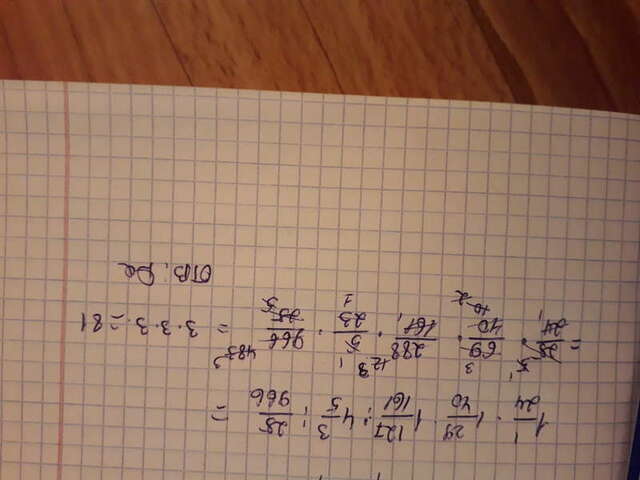 1 1/24 · 1 29/40 · 1 127/161 : 4 3/5 : 25/966 =
= 25/24 · 69/40 · 288/161 · 5/23 · 966/25 = 3 · 3 · 3 · 3 = 81
Отв: Да